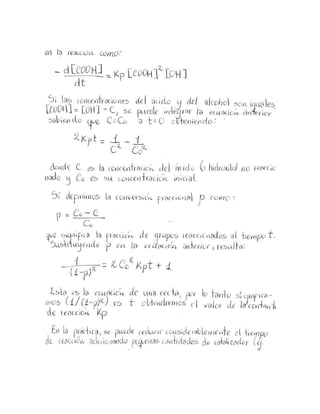 en la reacción como:
- d[COOH]/dt = Kp [COOH]² [OH]
Si las concentraciones del ácido y del alcohol son iguales,
[COOH] = [OH] = C, se puede integrar la ecuación anterior
sabiendo que C=Co a t=0 obteniendo:
2Kpt = 1/C² - 1/Co²
donde C es la concentración del ácido (o hidroxilo) no reaccio
nado y Co es su concentración inicial.
Si definimos la conversión fraccional p como:
p = Co - C / Co
que significa la fracción de grupos reaccionados al tiempo t.
Sustituyendo p en la ecuación anterior, resulta:
1/(1-p)² = 2 Co² Kpt + 1
Esta es la ecuación de una recta, por lo tanto si grafica-
mos (1/(1-p)²) vs t obtendremos el valor de la constante
de reacción Kp.
En la práctica, se puede reducir considerablemente el tiempo
de reacción adicionando pequeñas cantidades de catalizador (ej.